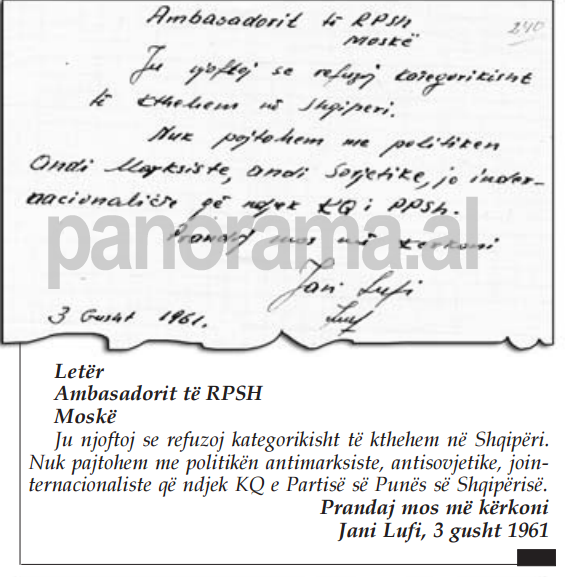 Ambasadorit të RPSH
Moskë
240
Ju njoftoj se refuzoj kategorikisht
të kthehem në Shqiperi.
Nuk pajtohem me politiken
andi Marksiste, andi Sovjetike, jo inder-
nacionaliste që ndjek KQ i PPSh.
Prandaj mos më kerkoni
Jani Lufi
Luf
3 Gusht 1961.
panorama.al
Letër
Ambasadorit të RPSH
Moskë
Ju njoftoj se refuzoj kategorikisht të kthehem në Shqipëri.
Nuk pajtohem me politikën antimarksiste, antisovjetike, join-
ternacionaliste që ndjek KQ e Partisë së Punës së Shqipërisë.
Prandaj mos më kërkoni
Jani Lufi, 3 gusht 1961